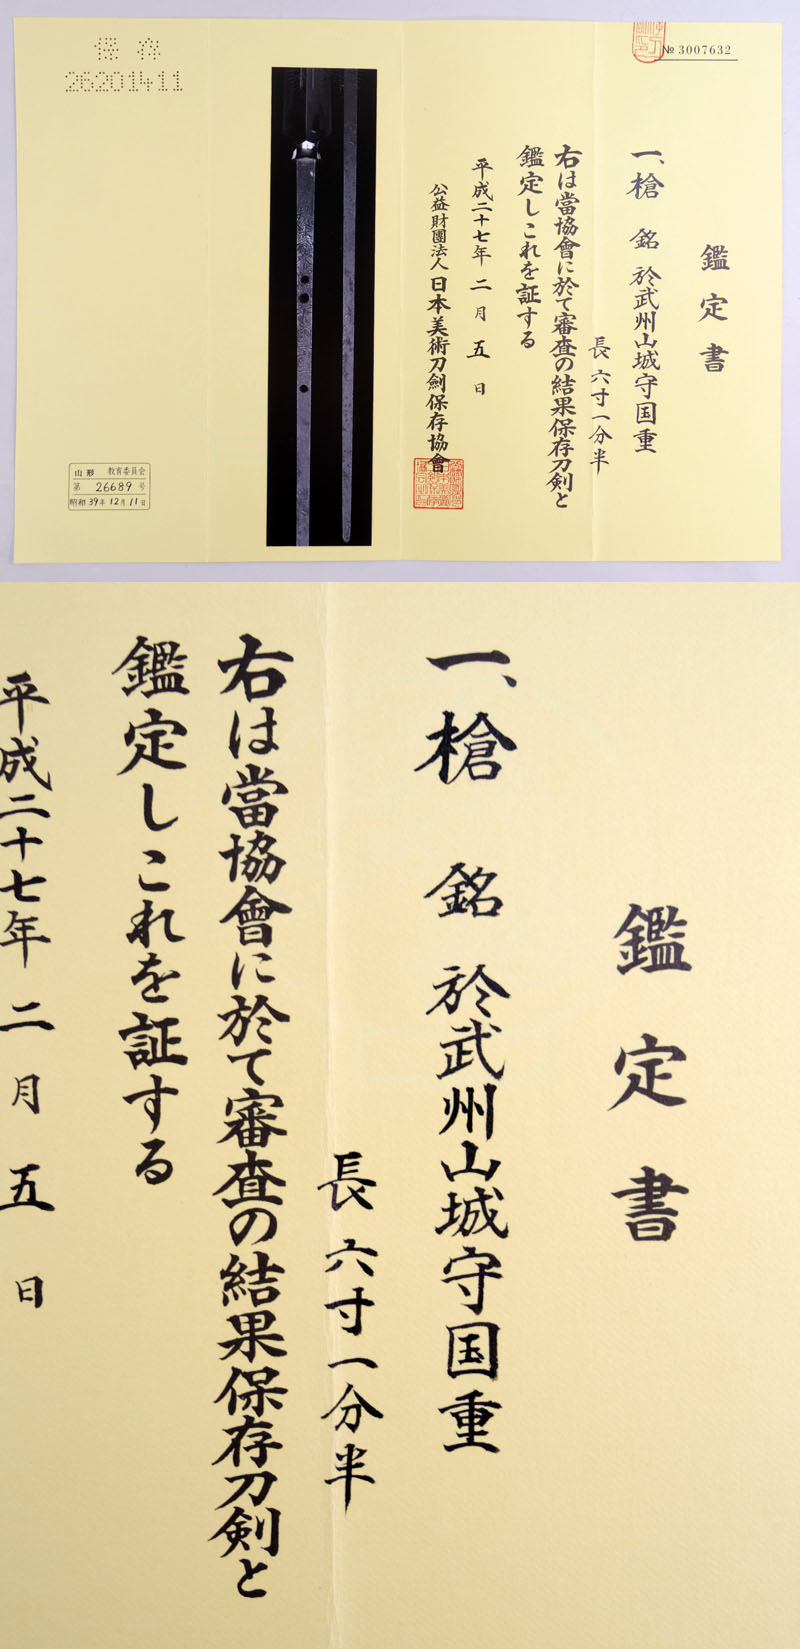 № 3007632
鑑定書
一、槍 銘 於武州山城守国重
長 六寸一分半
右は當協會に於て審査の結果保存刀剣と
鑑定しこれを証する
平成二十七年 二月 五日
公益財團法人 日本美術刀劍保存協會
保存
26201411
山形 教育委員会
第 26689 号
昭和39年12月11日
鑑定書
一、槍 銘 於武州山城守国重
長 六寸一分半
右は當協會に於て審査の結果保存刀剣と
鑑定しこれを証する
平成二十七年 二月 五日